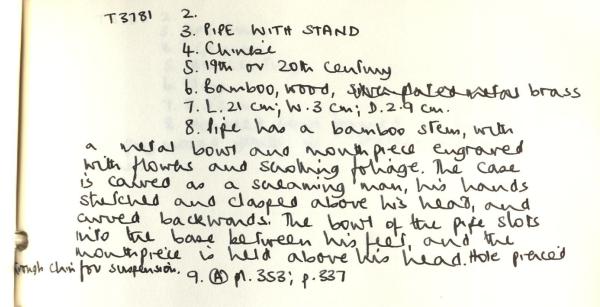 T3781 2.
3. PIPE WITH STAND
4. Chinese
5. 19th or 20th century
6. Bamboo, wood, silver plated metal brass
7. L. 21 cm; W. 3 cm; D. 2.9 cm.
8. Pipe has a bamboo stem, with
a metal bowl and mouthpiece engraved
with flowers and scrolling foliage. The case
is carved as a screaming man, his hands
stretched and clasped above his head, and
curved backwards. The bowl of the pipe slots
into the base between his feet, and the
mouthpiece is held above his head. Hole pierced
through chin for suspension. 9. (A) pl. 353; p. 337